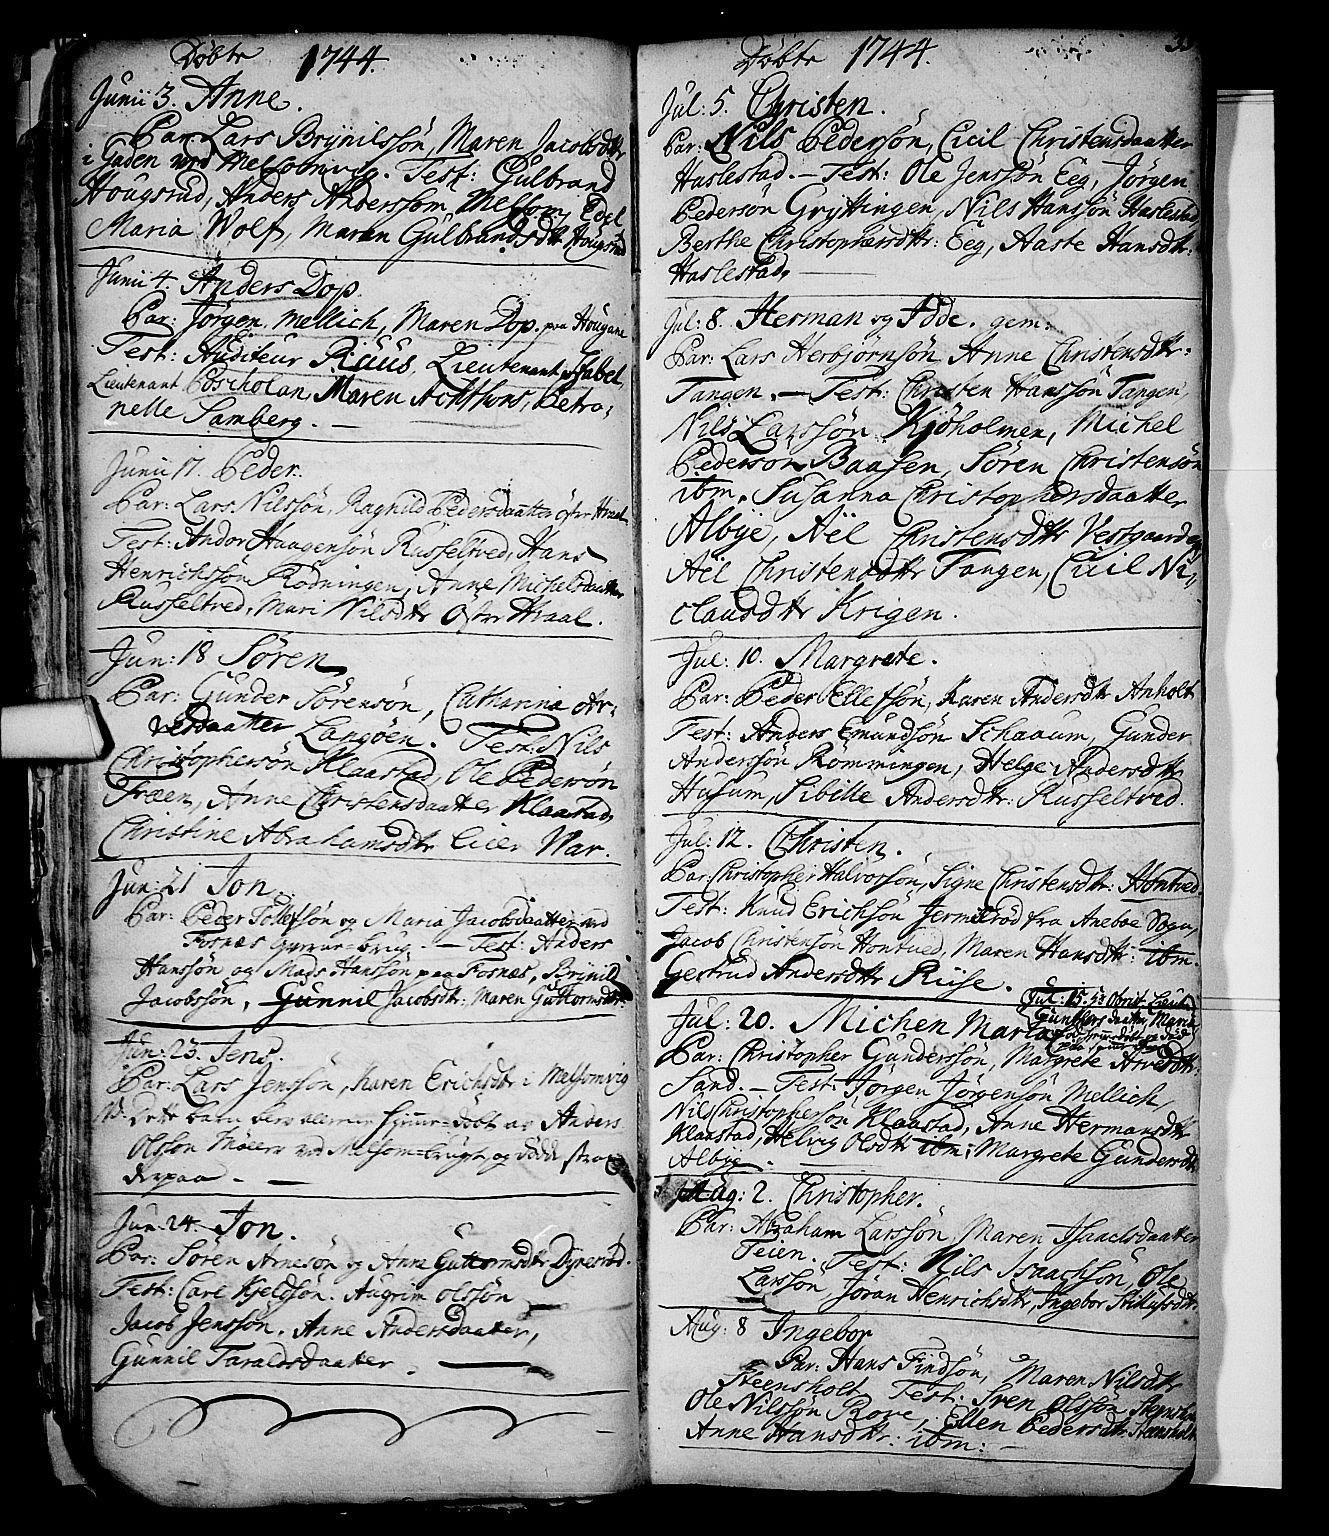 Döbte 1744.
Junii 3. Anne.
Par: Lars Brÿnilssön, Maren Jacobsdttr
i Gaden ved Melsomvig. Test: Gulbrand
Hougsrud, Anders Anderssøn Melsom, Edel
Maria Wolf, Maren Gulbrandsdttr Hougsrud
Junii 4. Anders Dop.
Par: Jörgen Mellich, Maren Dop. paa Hougane
Test: Auditeur Ruus, Lieutenant Isabel,
Lieutenant Coscholan, Maren Achthons, Petro-
nelle Samberg.
Junii 17. Peder.
Par: Lars Nilssön, Ragnild Pedersdaatter öfre Hraal
Test: Andor Haagensön Russeltved, Hans
Henrichssön Rödningen, Anne Michelsdaatter
Russeltved, Mari Nilsdttr Öfre Hraal.
Jun: 18 Sören
Par: Gunder Sörensön, Catharina Ar-
vesdaatter Langöen. Test: Nils
Christophersön Klaastad, Ole Pedersön
Fræen, Anne Christensdaatter Klaastad,
Christine Abrahamsdttr Lier Nar.
Jun: 21 Jon.
Par: Peder Tollefsön og Maria Jacobsdaatter ved
Fosnæs Grrur-brug. — Test: Anders
Hanssön og Mads Hanssön paa Fosnæs, Brÿnild
Jacobssön, Gunnil Jacobsdtr: Maren Guttormsdttr:
Jun: 23. Jens.
Par: Lars Jenssön, Karen Erichsdttr i Melsomvig
NB. Dette barn blev allene hjemme-döbt av Anders
Olssön Möller ved Melsom-brugt og döde strax
derpaa. —
Jun: 24. Jon.
Par: Sören Arnesön og Anne Guttormsdttr Dyresröd.
Test: Carl Kjeldsön. Augrim Olssön
Jacob Jenssön. Anne Andersdaatter,
Gunnil Taraldsdaatter.
Döbte 1744.
Jul: 5. Christen.
Par: Nils Pedersön, Cicil Christensdaatter
Haslestad. — Test: Ole Jenssön Eeg, Jörgen
Pedersön Gryttingen, Nils Hanssön Haslestad
Berthe Christophersdttr: Eeg, Aaste Hansdttr:
Haslestad.
Jul: 8. Herman og Adde. gem:
Par: Lars Herbjörnsön Anne Christensdttr:
Tangen. — Test: Christen Hanssön Tangen
Nils Larssön Kjöholmen, Michel
Pedersön Baasen, Sören Christensön
ibm. Susanna Christophersdaatter
Albÿe, Aël Christensdttr Vestgaarden
Aël Christensdttr Tangen, Cicil Ni-
claudttr Krigen.
Jul: 10. Margrete.
Par: Peder Ellefsön, Karen Andersdttr Anholt
Test: Anders Emundsön Schaaum, Gunder
Anderssön Römmingen, Helge Andersdttr
Husum, Sibille Andersdttr: Russeltved.
Jul: 12. Christen.
Par: Christopher Halvorssön, Signe Christensdttr: Hontved.
Test: Knud Erichsön Jermeröd fra Aneboe Sogn,
Jacob Christensön Hontved, Maren Hansdttr: ibm.
Gertrud Andersdttr Riise.
Jul: 15. Obrist Lieut:
Gunthers daatter, Maria
Jul: 20. Michen Maria
Par: Christopher Gunderssön, Margrete Arvesdttr:
Sand. — Test: Jörgen Jörgensön Mellich,
Nils Christophersön Klaastad, Anne Hermansdttr
Klaastad, Helvig Olsdttr ibm: Margrete Gundersdttr
Albÿe.
Aug: 2. Christopher.
Par: Abraham Larssön Maren Isaachsdaatter
Teien. Test: Nils Isaachsön, Ole
Larssön Jöran Henrichsdttr, Ingebor
Aug: 8 Ingebor
Par: Hans Findsön, Maren Nilsdttr
Steensholt. Test: Sven Olssön Steensholt
Ole Nilssön Rove, Ellen Pedersdttr Steensholt
Anne Hansdttr: ibm: —